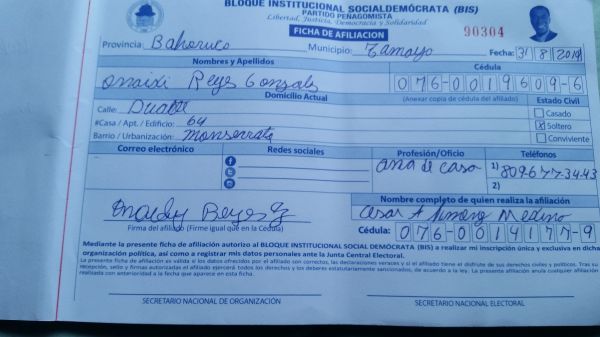 BLOQUE INSTITUCIONAL SOCIALDEMÓCRATA (BIS)
PARTIDO PEÑAGOMISTA
Libertad, Justicia, Democracia y Solidaridad
FICHA DE AFILIACION
90304
Provincia: Bahoruco Municipio: Tamayo Fecha: 31 8 2019
Nombres y Apellidos Cédula
Reyes Gonzalez 076-0019609-6
Domicilio Actual (Anexar copia de cédula del afiliado) Estado Civil
Calle: Duarte Casado
#Casa / Apt. / Edificio: 64 X Soltero
Barrio / Urbanización: Monserrate Conviviente
Correo electrónico Redes sociales Profesión/Oficio Teléfonos
ama de casa 1) 809-677-3443
2)
Reyes G
Firma del afiliado (Firme igual que en la Cédula)
Nombre completo de quien realiza la afiliación
Cesar A Jimenez Medina
Cédula: 076-0014177-9
Mediante la presente ficha de afiliación autorizo al BLOQUE INSTITUCIONAL SOCIAL DEMÓCRATA (BIS) a realizar mi inscripción única y exclusiva en dicha
organización política, así como a registrar mis datos personales ante la Junta Central Electoral.
La presente ficha de afiliación es válida si los datos ofrecidos por el afiliado son correctos, las declaraciones veraces y si el afiliado tiene el disfrute de sus derechos civiles y políticos. Tras su
recepción, sello y firmas autorizadas el afiliado ejercerá todos los derechos y los deberes estatutariamente sancionados, de acuerdo a la ley. La presente afiliación anula cualquier afiliación
realizada con anterioridad a la fecha que aparece en esta ficha.
SECRETARIO NACIONAL DE ORGANIZACIÓN SECRETARIO NACIONAL ELECTORAL